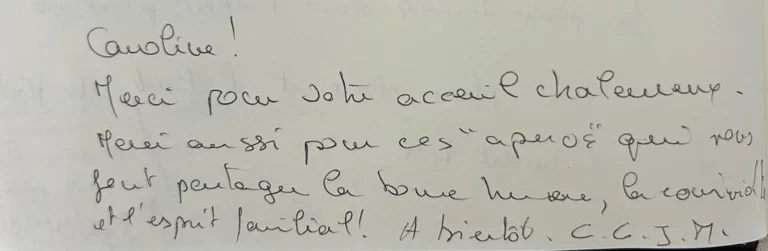 Caroline !
Merci pour votre accueil chaleureux.
Merci aussi pour ces "apéros" qui nous
font partager la bonne humeur, la convivial
et l'esprit familial ! A bientôt. C.C.J.M.